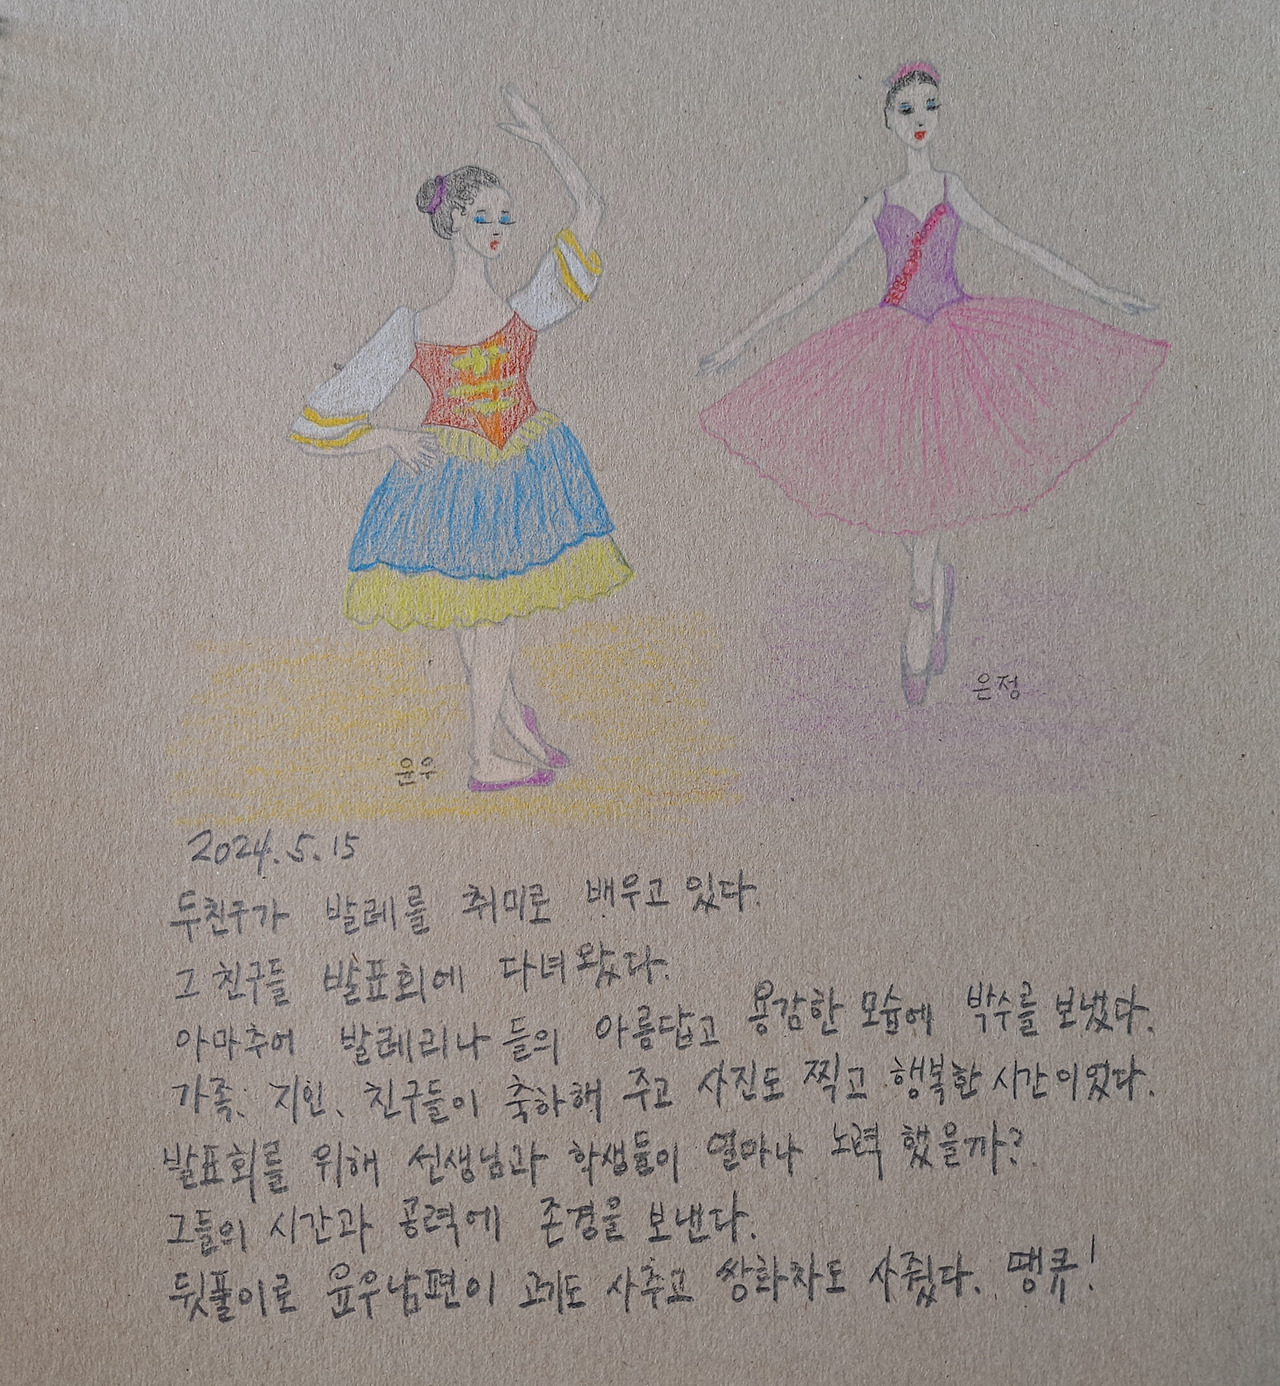 은정
윤우
2024.5.15
두친구가 발레를 취미로 배우고 있다.
그 친구들 발표회에 다녀왔다.
아마추어 발레리나 들의 아름답고 용감한 모습에 박수를 보냈다.
가족, 지인, 친구들이 축하해 주고 사진도 찍고 행복한 시간이었다.
발표회를 위해 선생님과 학생들이 얼마나 노력 했을까?
그들의 시간과 공력에 존경을 보낸다.
뒷풀이로 윤우남편이 고기도 사주고 쌍화차도 사줬다. 땡큐!